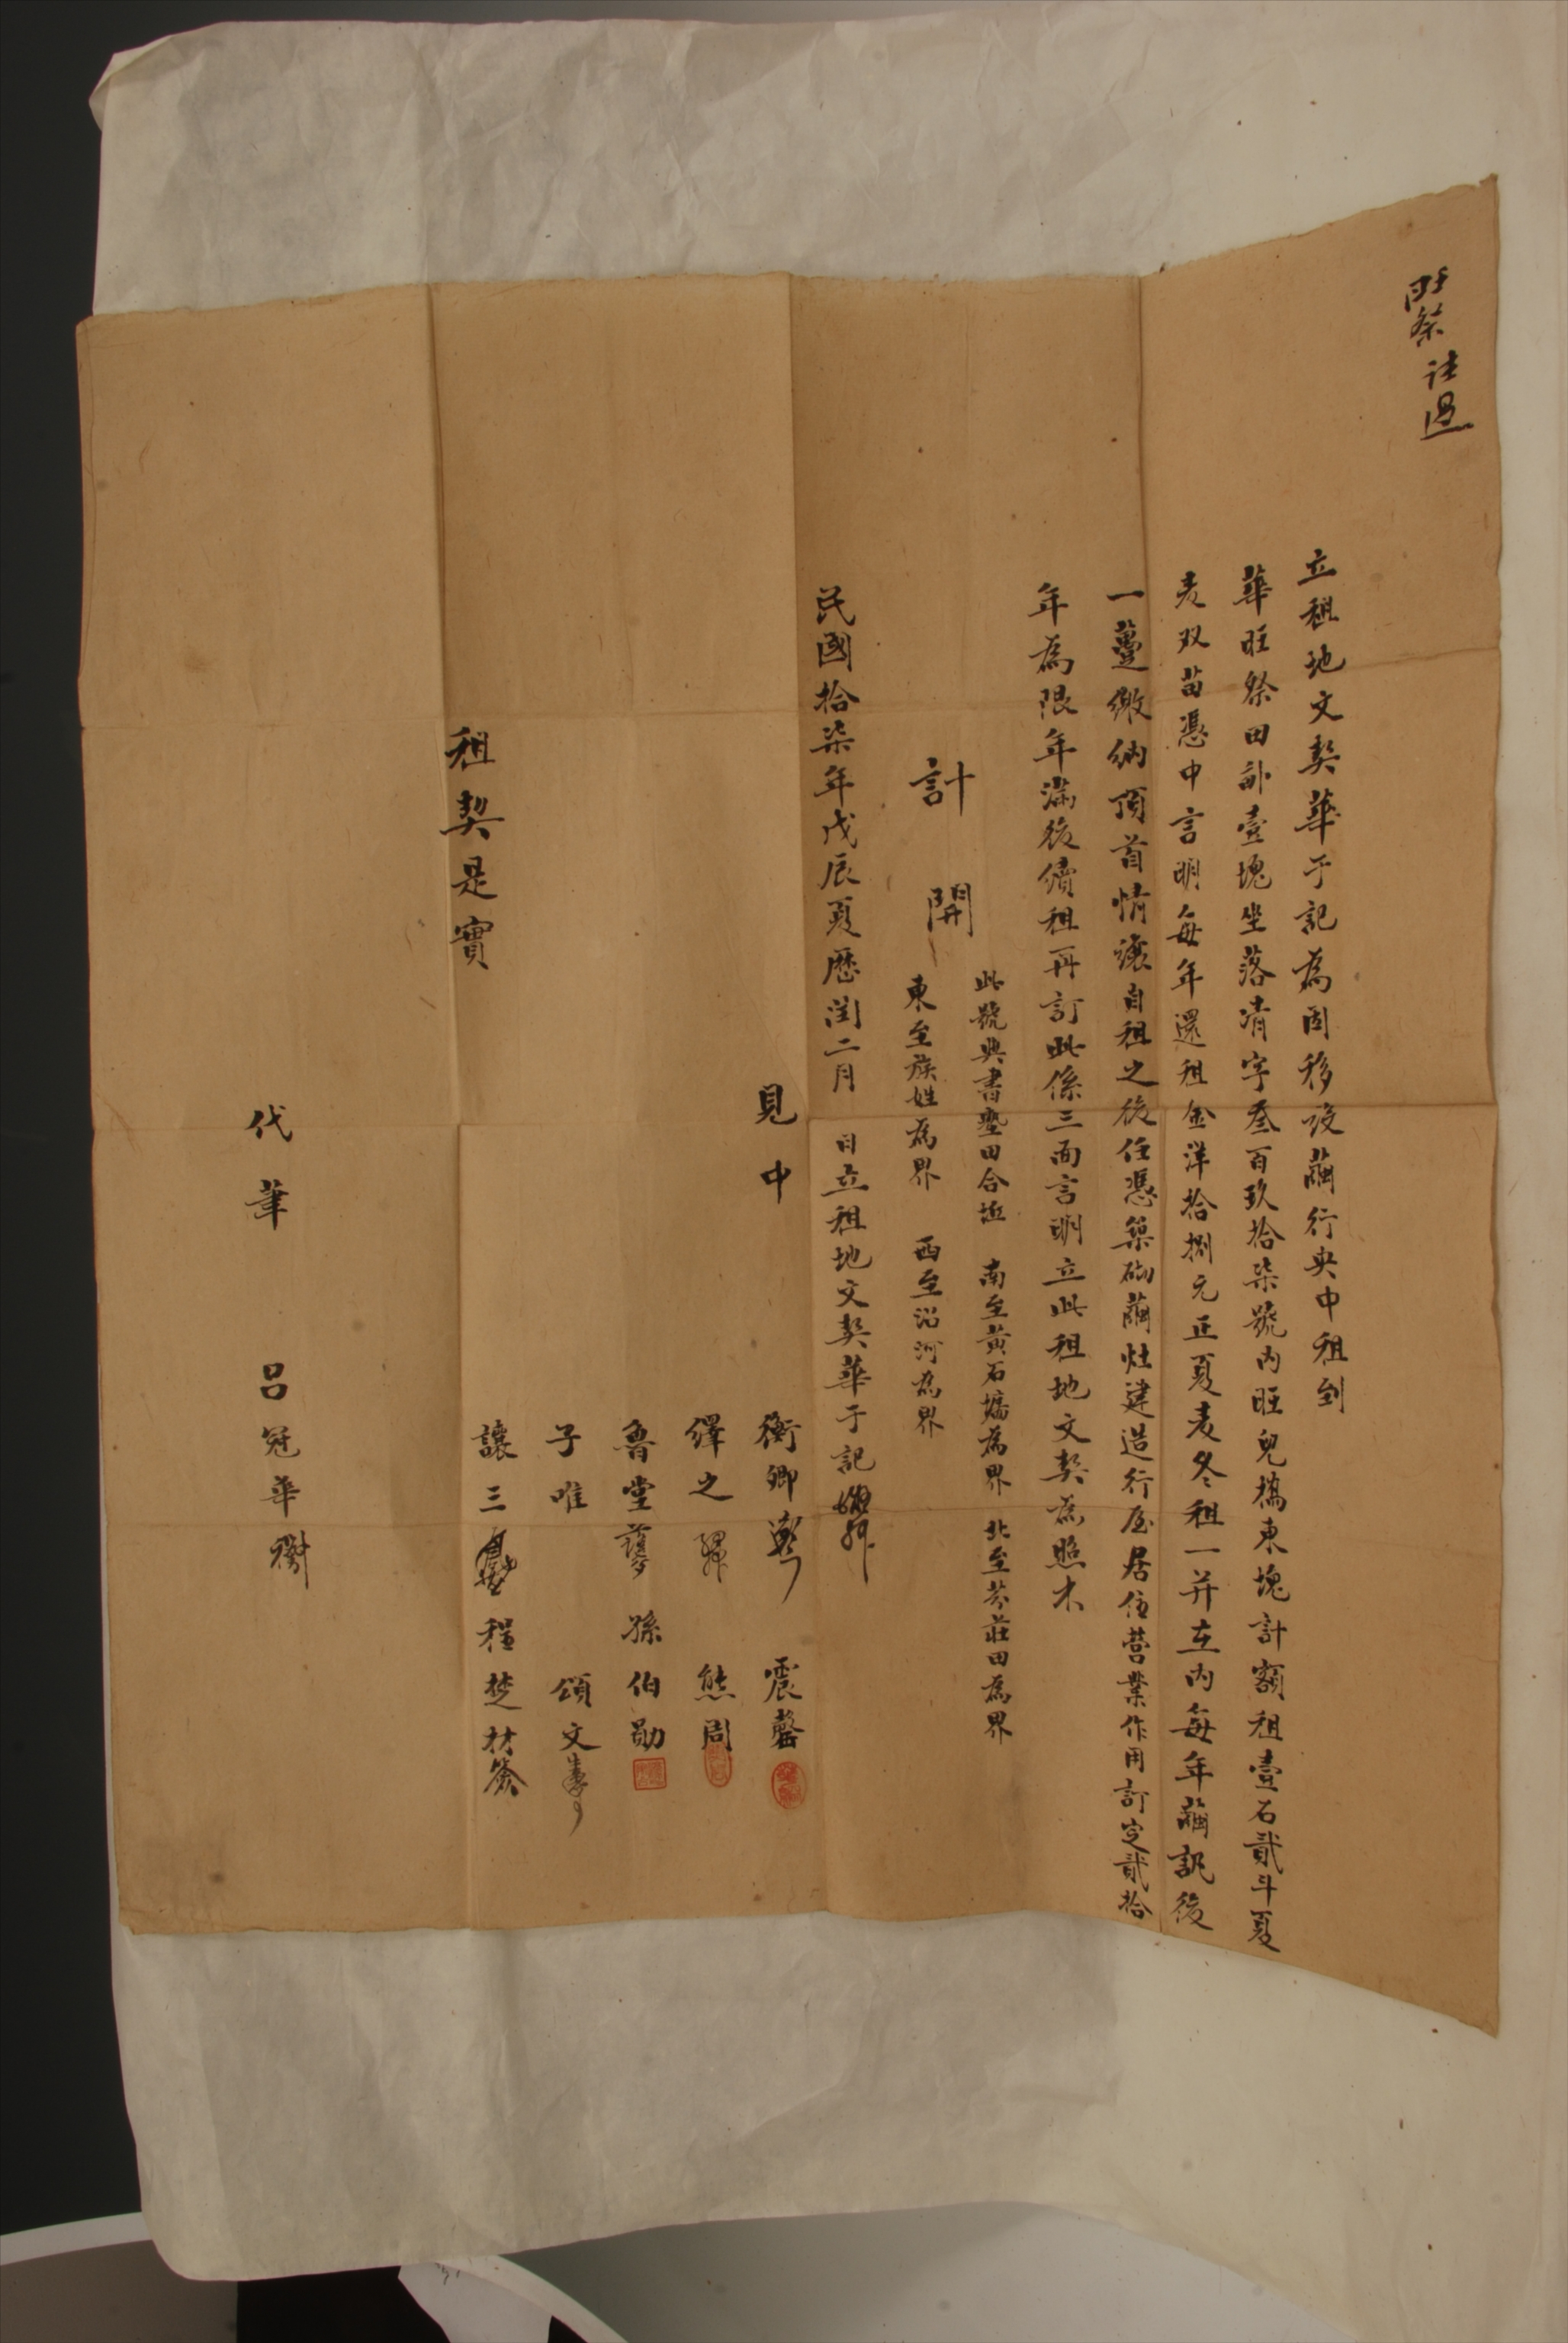 旺祭註過
立租地文契華于記為因移設繭行央中租到
華旺祭田計壹塊坐落清字叁百玖拾柒號內旺兒橋東塊計額租壹石貳斗夏
麦双苗憑中言明每年還租金洋拾捌元正夏麦冬租一并在內每年繭訊後
一躉繳納頂首情讓自租之後任憑築砌繭灶建造行屋居住營業作用訂定貳拾
年為限年滿後續租再訂此係三面言明立此租地文契為照
計開
此號與書塾田合坵 南至黃石墻為界 北至芬莊田為界
東至族姓為界 西至沿河為界
民國拾柒年戊辰夏歷閏二月 日立租地文契華于記
見中
衡卿 震馨
繹之 熊周
魯堂 孫伯勛
子唯 頌文
讓三 程楚材簽
租契是實
代筆 呂冠華